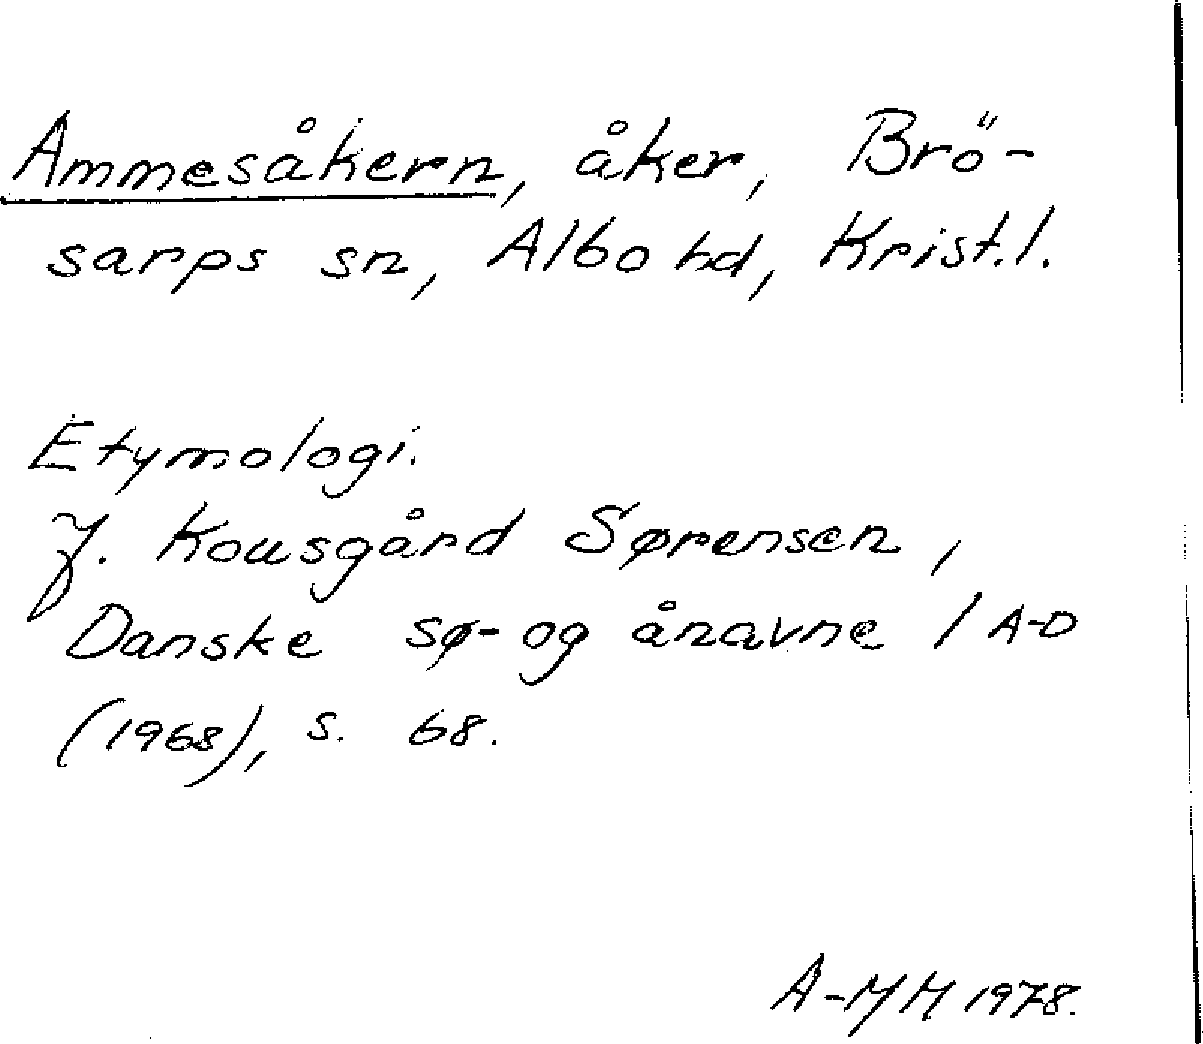 Ammesåkern, åker, Brö-
sarps sn, Albo hd, Krist.l.
Etymologi.
J. Kousgård Sørensen,
Danske sø- og ånavne 1 A-D
(1968), s. 68.
A-MH 1978.